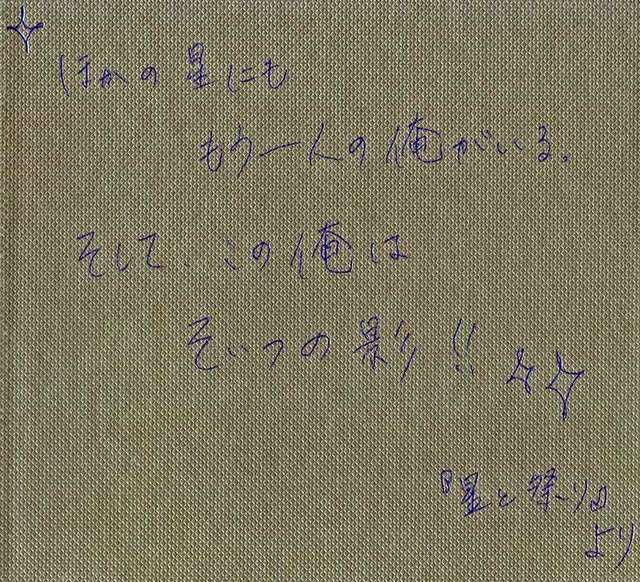 ほかの星にも
もう一人の俺がいる。
そして、この俺は
そいつの影!!
『星と祭り』
より